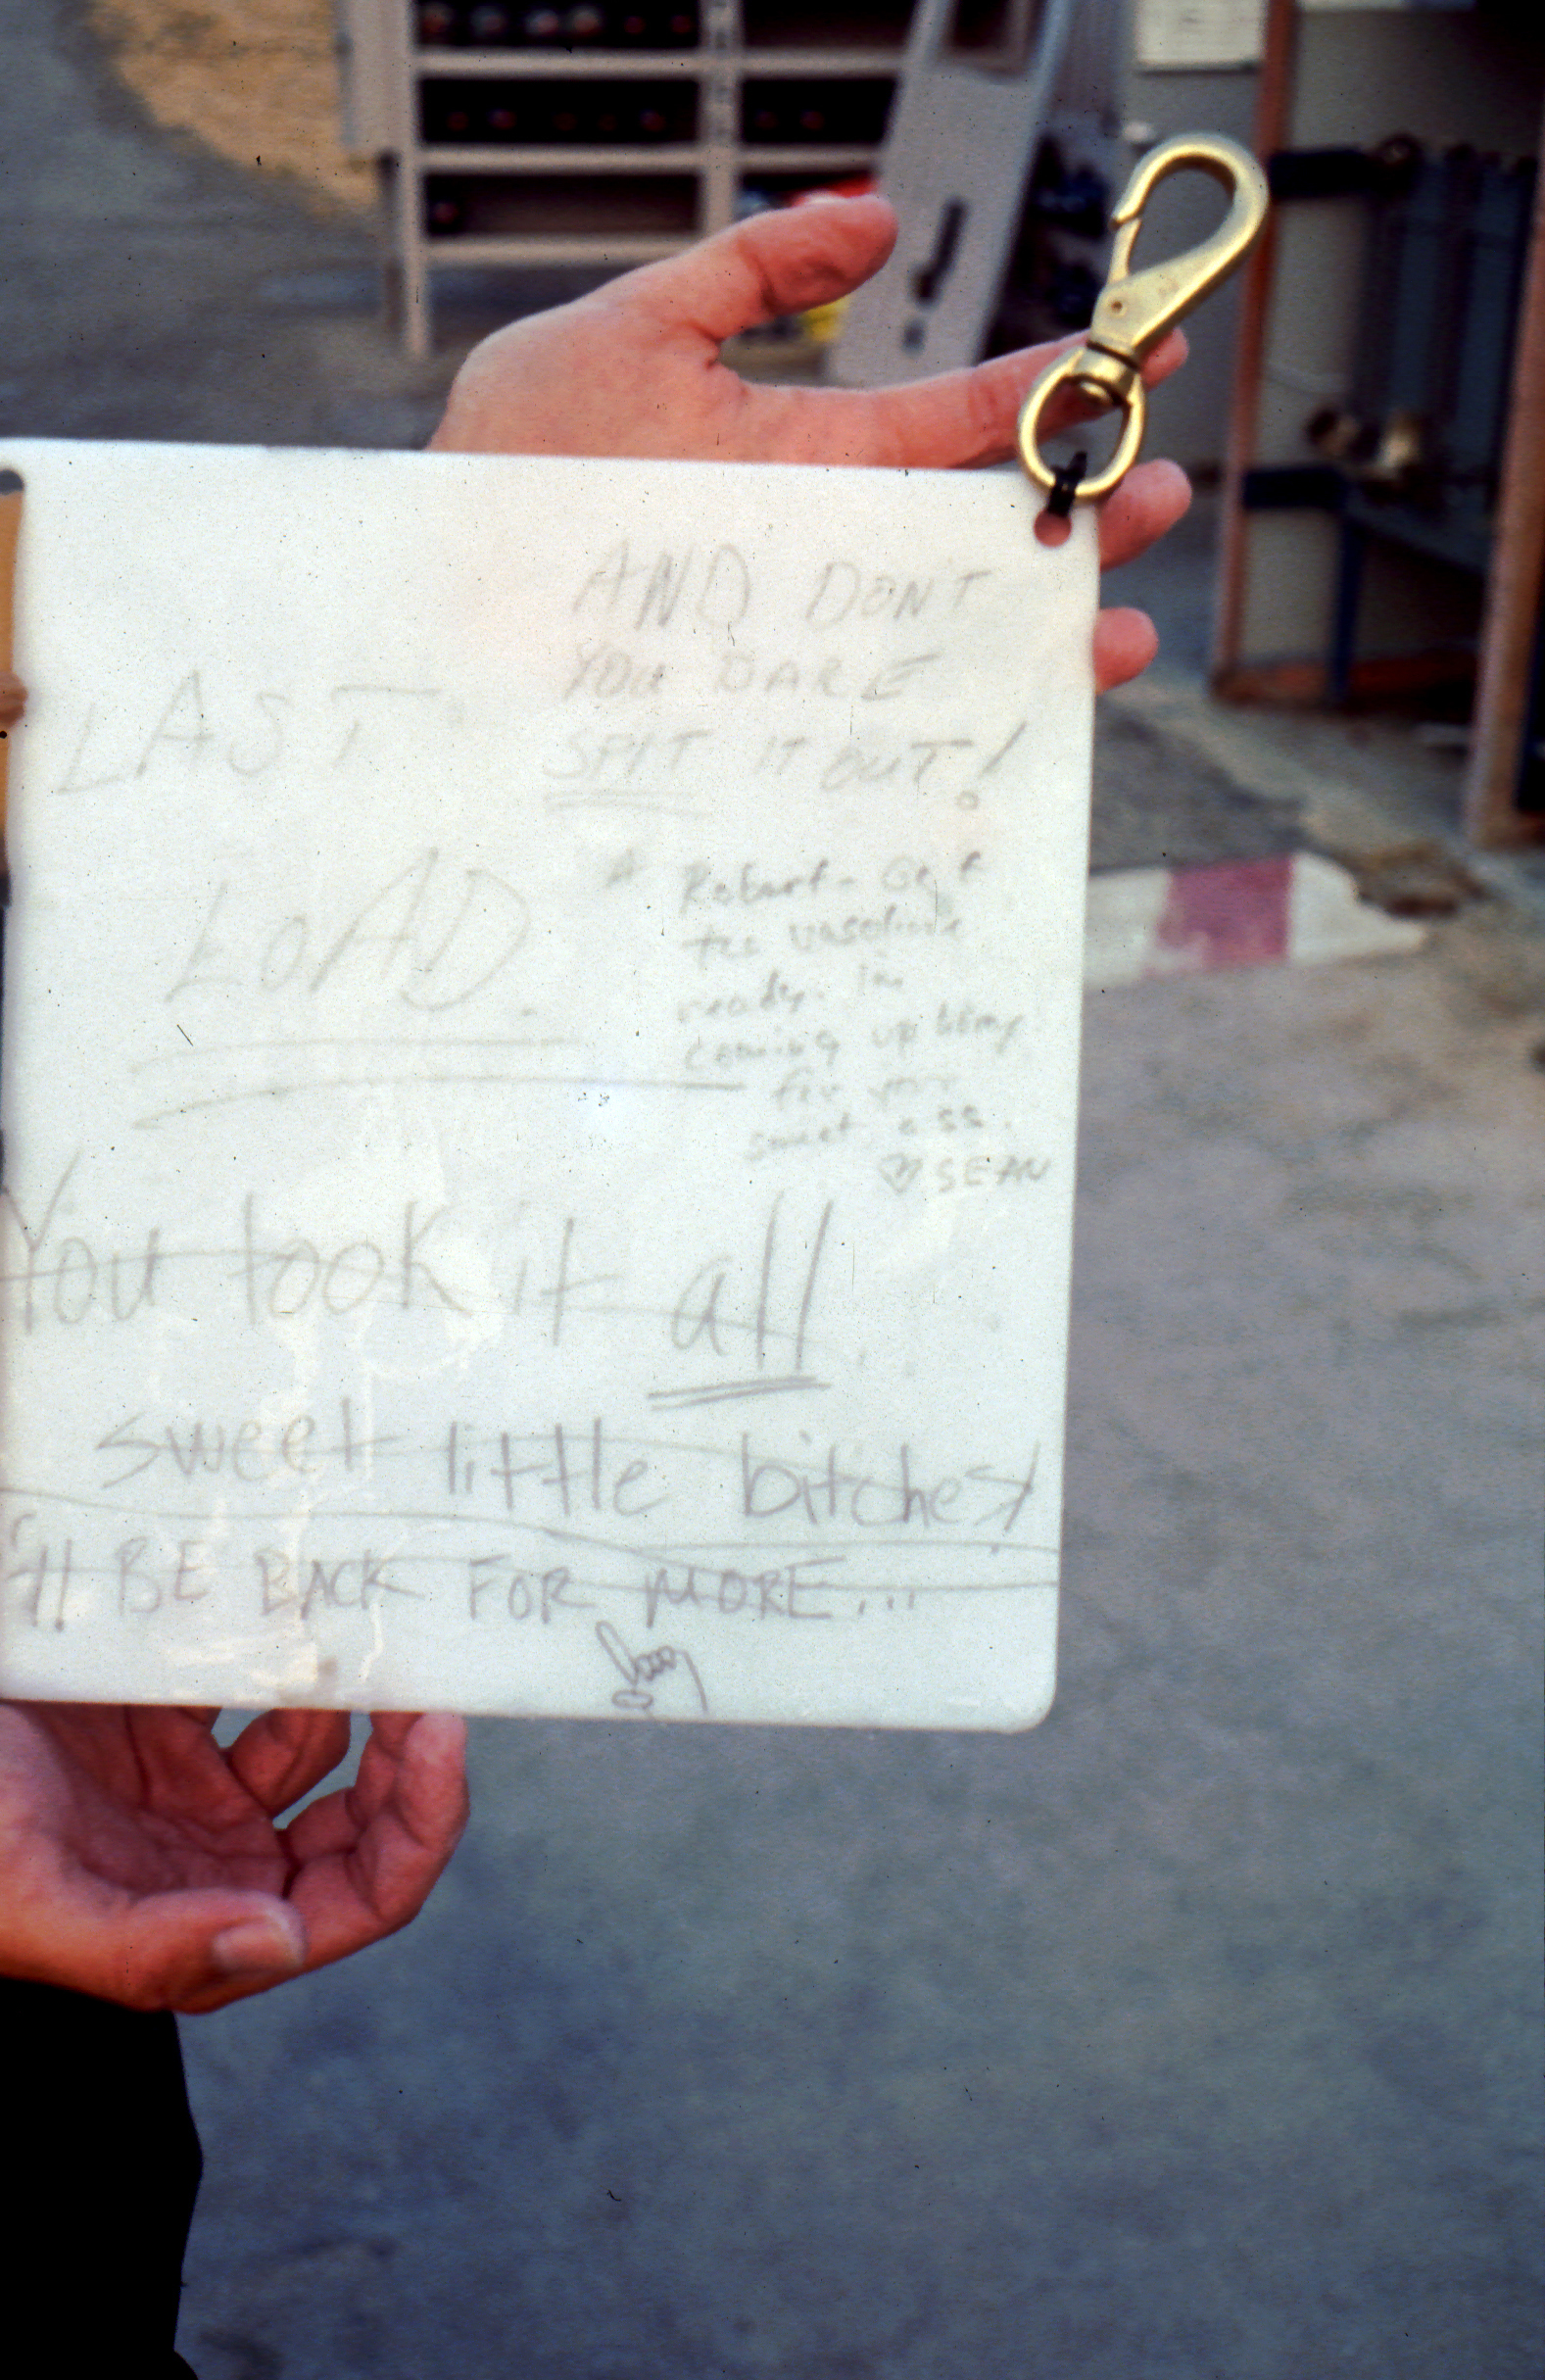 AND DON'T
YOU DARE
SPIT IT OUT!
LAST
LOAD.
* Robert - Get
the vaseline
ready. I'm
coming up
for your
sweet ass.
♡ SEAN
You took it all
sweet little bitches!
I'll BE BACK FOR MORE...